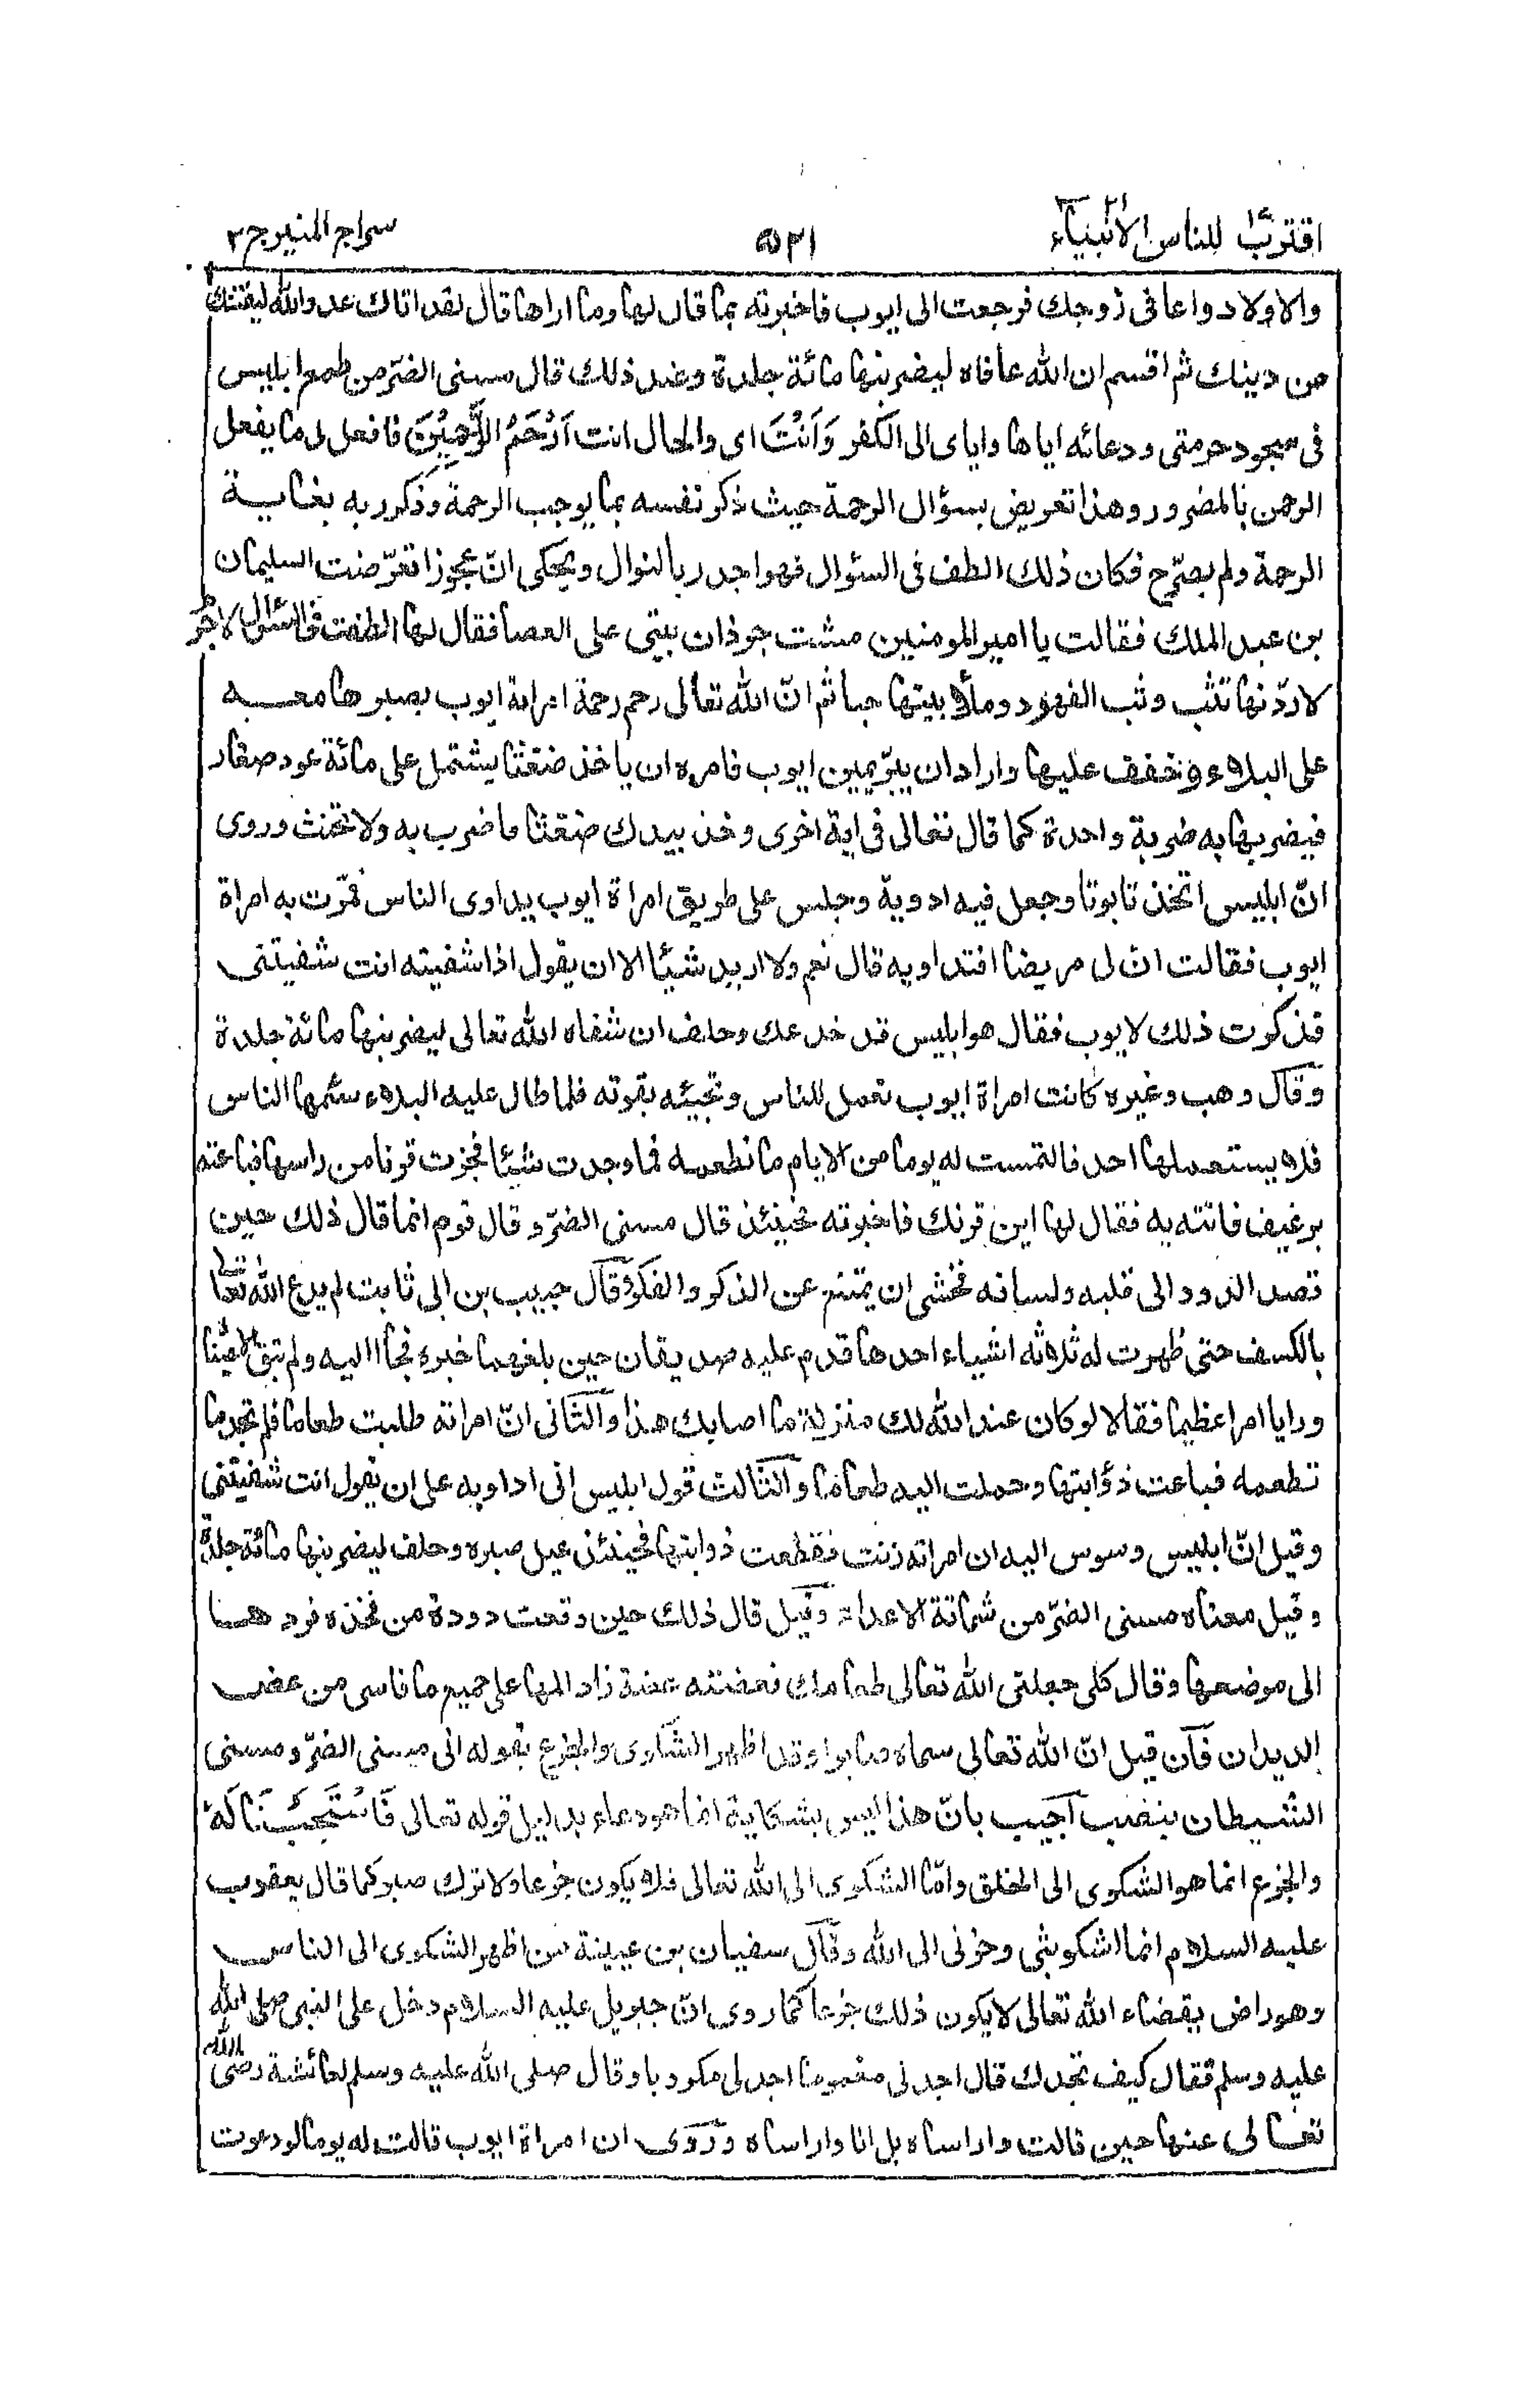 اقترب ١٧ للناس الأنبياء ٢١
٥٢١
سراج المنير ج ٢
والاولاد واعافى زوجك فرجعت الى ايوب فاخبرته بما قال لها وما اراها قال لقد اتاك عدو الله ليفتنك
من دينك ثم اقسم ان الله عافاه ليضربنها مائة جلدة وعند ذلك قال مسنى الضرّ من طمع ابليس
فى سجود حرمتى ودعائه اياها واياى الى الكفر وَاَنْتَ اى والحال انت اَرْحَمُ الرَّاحِمِيْنَ فافعل لى ما يفعل
الرحمن بالمضرور وهذا تعريض بسؤال الرحمة حيث ذكر نفسه بما يوجب الرحمة وذكر ربه بغاية
الرحمة ولم يصرّح فكان ذلك الطف فى السئوال فهو اجدر بالنوال ويحكى انّ عجوزا تعرّضت لسليمان
بن عبد الملك فقالت يا امير المومنين مشت جرذان بيتى على العصا فقال لها الطفت فى السئوال لاجرم
لاردّنها تثب وثب الفهود وملأ بيتها حبا ثم انّ الله تعالى رحم رحمة امراة ايوب بصبرها معه
على البلاء وخفف عليها واراد ان يبرّ يمين ايوب فامره ان ياخذ ضغثا يشتمل على مائة عود صغار
فيضربها به ضربة واحدة كما قال تعالى فى اية اخرى وخذ بيدك ضغثا فاضرب به ولا تحنث وروى
انّ ابليس اتخذ تابوتا وجعل فيه ادوية وجلس على طريق امراة ايوب يداوى الناس فمرّت به امراة
ايوب فقالت ان لى مريضا افتداويه قال نعم ولا اريد شيئا الا ان يقول اذا شفيته انت شفيتنى
فذكرت ذلك لايوب فقال هو ابليس قد خدعك وحلف ان شفاه الله تعالى ليضربنها مائة جلدة
وقال وهب وغيره كانت امراة ايوب تعمل للناس وتجيئه بقوته فلما طال عليه البلاء سئمها الناس
فلا يستعملها احد فالتمست له يوما من الايام ما تطعمه فما وجدت شيئا فجزت قرنا من راسها فباعته
برغيف فاتته به فقال لها اين قرنك فاخبرته فحينئذ قال مسنى الضرّ وقال قوم انما قال ذلك حين
قصد الدود الى قلبه ولسانه فخشى ان يمتنع عن الذكر والفكر وقال حبيب بن ابى ثابت لم يدع الله تعالى
بالكشف حتى ظهرت له ثلاثة اشياء احدها قدم عليه صديقان حين بلغهما خبره فجاا اليه ولم تبق الا عيناه
ورايا امرا عظيما فقالا لو كان عند الله لك منزلة ما اصابك هذا والثانى انّ امراته طلبت طعاما فلم تجد ما
تطعمه فباعت ذؤابتها وحملت اليه طعاما والثالث قول ابليس انى اداويه على ان يقول انت شفيتنى
وقيل انّ ابليس وسوس اليه ان امراته زنت فقطعت ذوابتها فحينئذ عيل صبره وحلف ليضربنها مائة جلدة
وقيل معناه مسنى الضرّ من شماتة الاعداء وقيل قال ذلك حين وقعت دودة من فخذه فردها
الى موضعها وقال كلى جعلنى الله تعالى طعامك فعضته عضة زاد المها على جميع ما قاسى من عض
الديدان فان قيل انّ الله تعالى سماه صابرا وقد اظهر الشكوى والجزع بقوله انى مسنى الضرّ ومسنى
الشيطان بنصب اجيب بانّ هذا ليس بشكاية انما هو دعاء بدليل قوله تعالى فَاسْتَجَبْنَا لَهٗ
والجزع انما هو الشكوى الى الخلق وامّا الشكوى الى الله تعالى فلا يكون جزعا ولا ترك صبر كما قال يعقوب
عليه السلام انما اشكو بثى وحزنى الى الله وقال سفيان بن عيينة من اظهر الشكوى الى الناس
وهو راض بقضاء الله تعالى لا يكون ذلك جزعا كما روى انّ جبريل عليه السلام دخل على النبى صلى الله
عليه وسلم فقال كيف تجدك قال اجدنى مغموما اجدنى مكروبا وقال صلى الله عليه وسلم لعائشة رضى الله
تعالى عنها حين قالت واراساه بل انا واراساه وروى ان امراة ايوب قالت له يوما لو دعوت